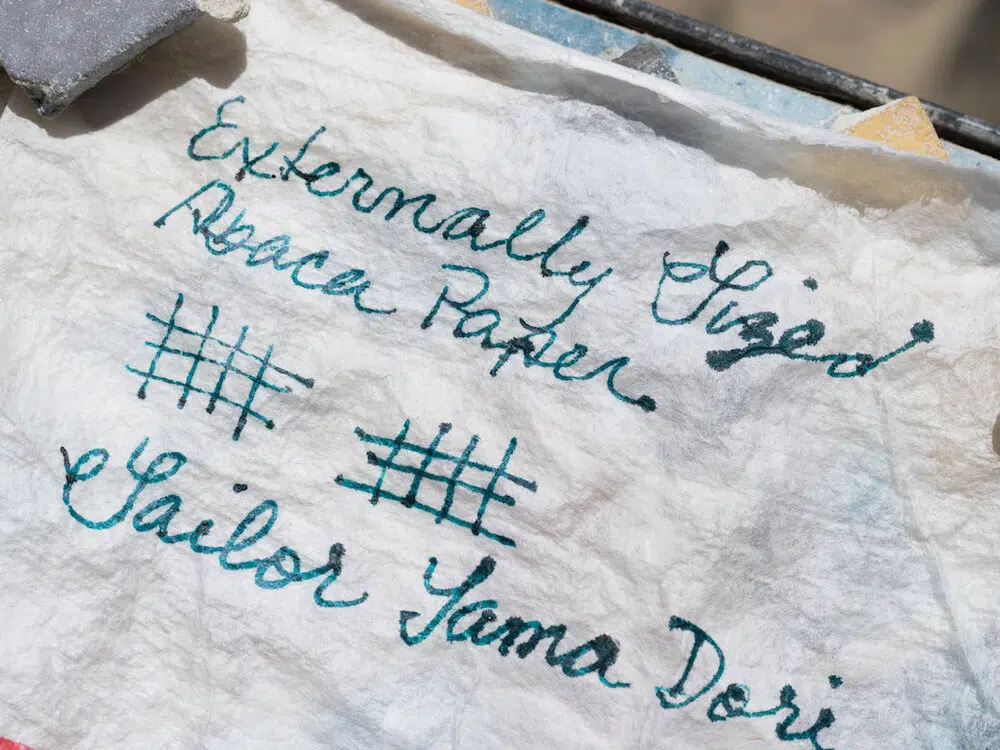 Externally Sized
Abaca Paper
Sailor Yama Dori